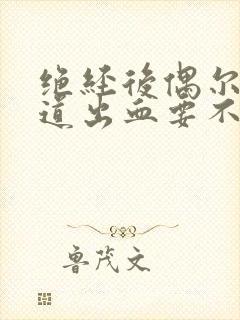 绝经後偶尔
道出血要不
鲁茂文